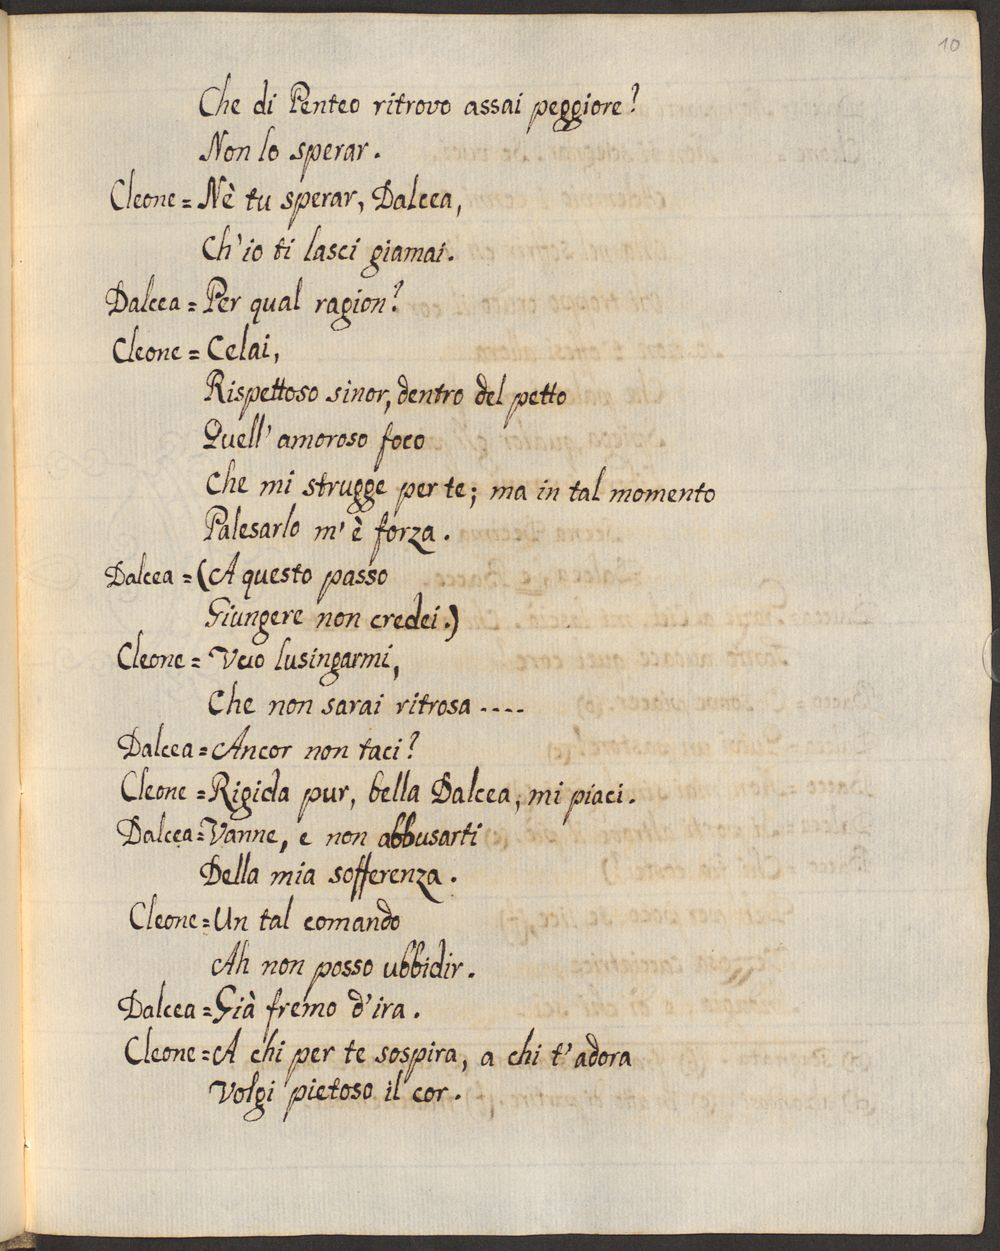 10
Che di Penteo ritrovo assai peggiore?
Non lo sperar.
Cleone = Nè tu sperar, Dalcea,
Ch'io ti lasci giamai.
Dalcea = Per qual ragion?
Cleone = Celai,
Rispettoso sinor, dentro del petto
Quell' amoroso foco
Che mi strugge per te; ma in tal momento
Palesarlo m' è forza.
Dalcea = (A questo passo
Giungere non credei.)
Cleone = Vuo lusingarmi,
Che non sarai ritrosa ....
Dalcea = Ancor non taci?
Cleone = Rigida pur, bella Dalcea, mi piaci.
Dalcea = Vanne, e non abbusarti
Della mia sofferenza.
Cleone = Un tal comando
Ah non posso ubbidir.
Dalcea = Già fremo d'ira.
Cleone = A chi per te sospira, a chi t'adora
Volgi pietoso il cor.